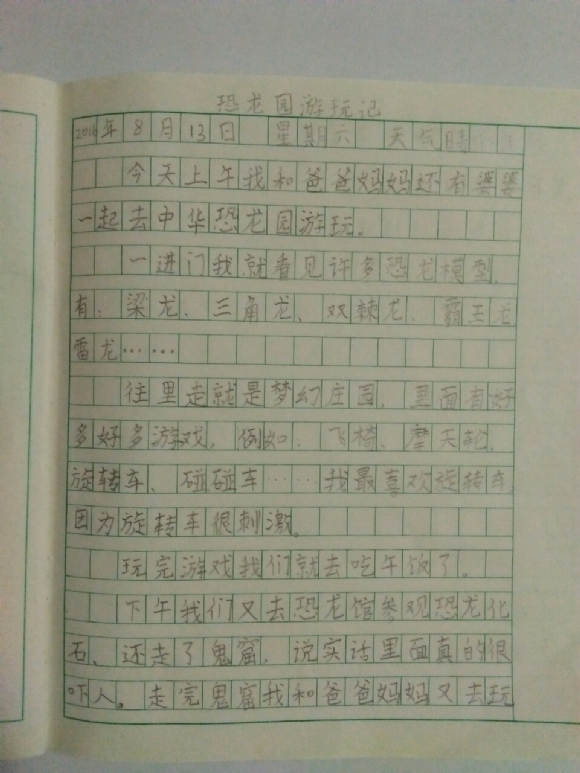 恐龙园游玩记
2016年8月13日 星期六 天气晴
今天上午我和爸爸妈妈还有婆婆
一起去中华恐龙园游玩。
一进门我就看见许多恐龙模型,
有:梁龙、三角龙、双棘龙、霸王龙
雷龙……
往里走就是梦幻庄园,里面有好
多好多游戏,例如:飞椅、摩天轮、
旋转车、碰碰车……我最喜欢旋转车,
因为旋转车很刺激。
玩完游戏我们就去吃午饭了。
下午我们又去恐龙馆参观恐龙化
石、还走了鬼窟,说实话里面真的很
吓人。走完鬼窟我和爸爸妈妈又去玩